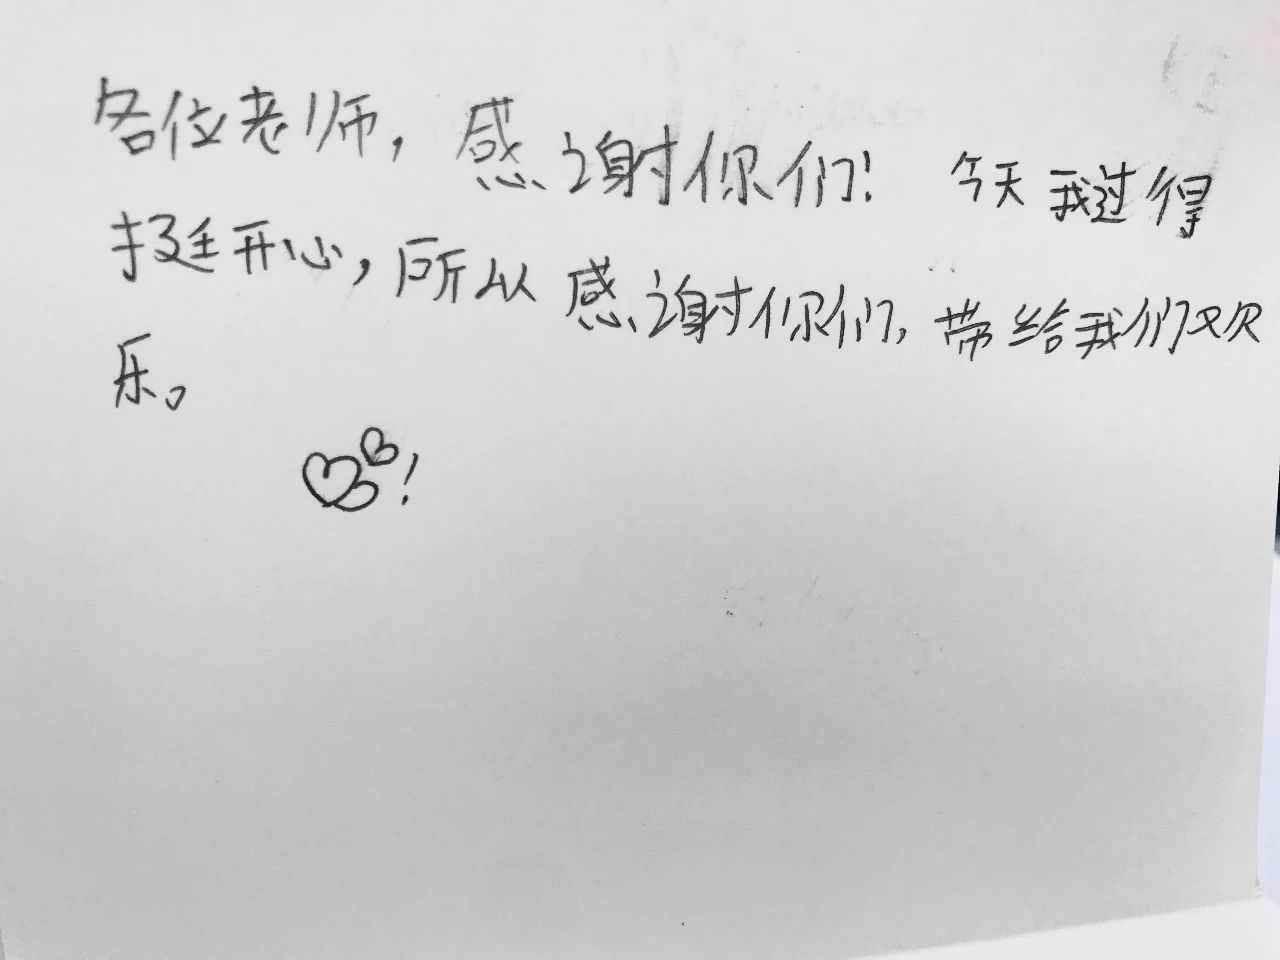 各位老师，感谢你们！今天我过得
挺开心，所以感谢你们，带给我们欢
乐。
！